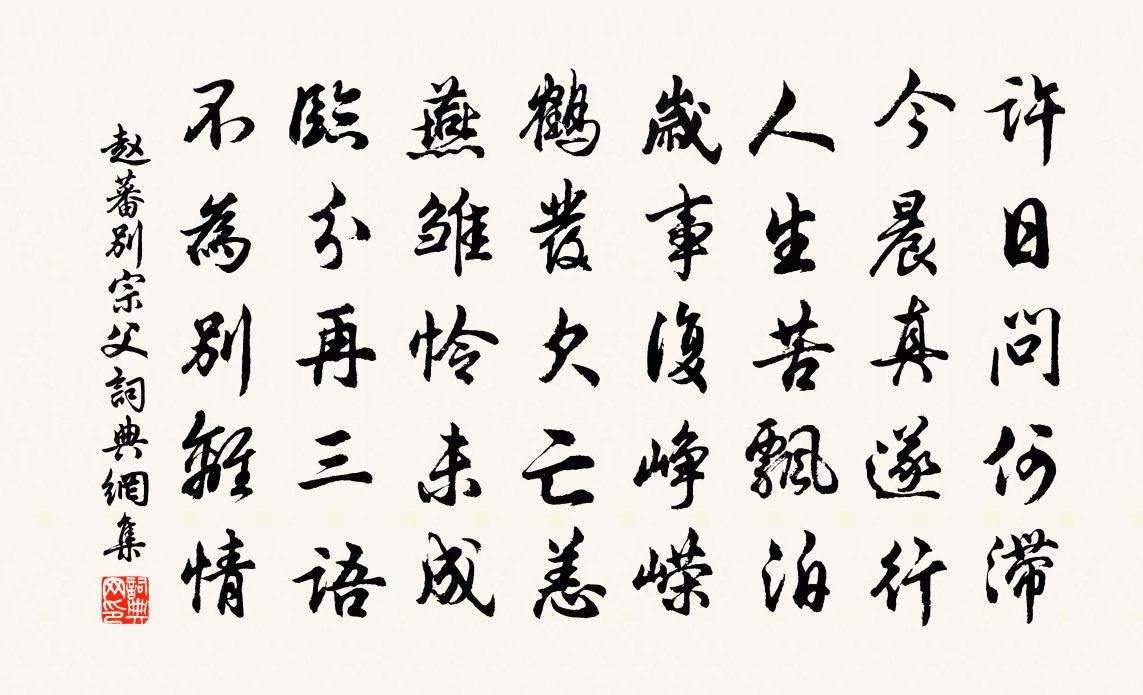 許日問何滯
今晨真遂行
人生苦飄泊
歲事復崢嶸
鶴發欠亡恙
燕雏怜未成
臨分再三語
不為別離情
赵蕃別宗父詞典網集
詞典網印